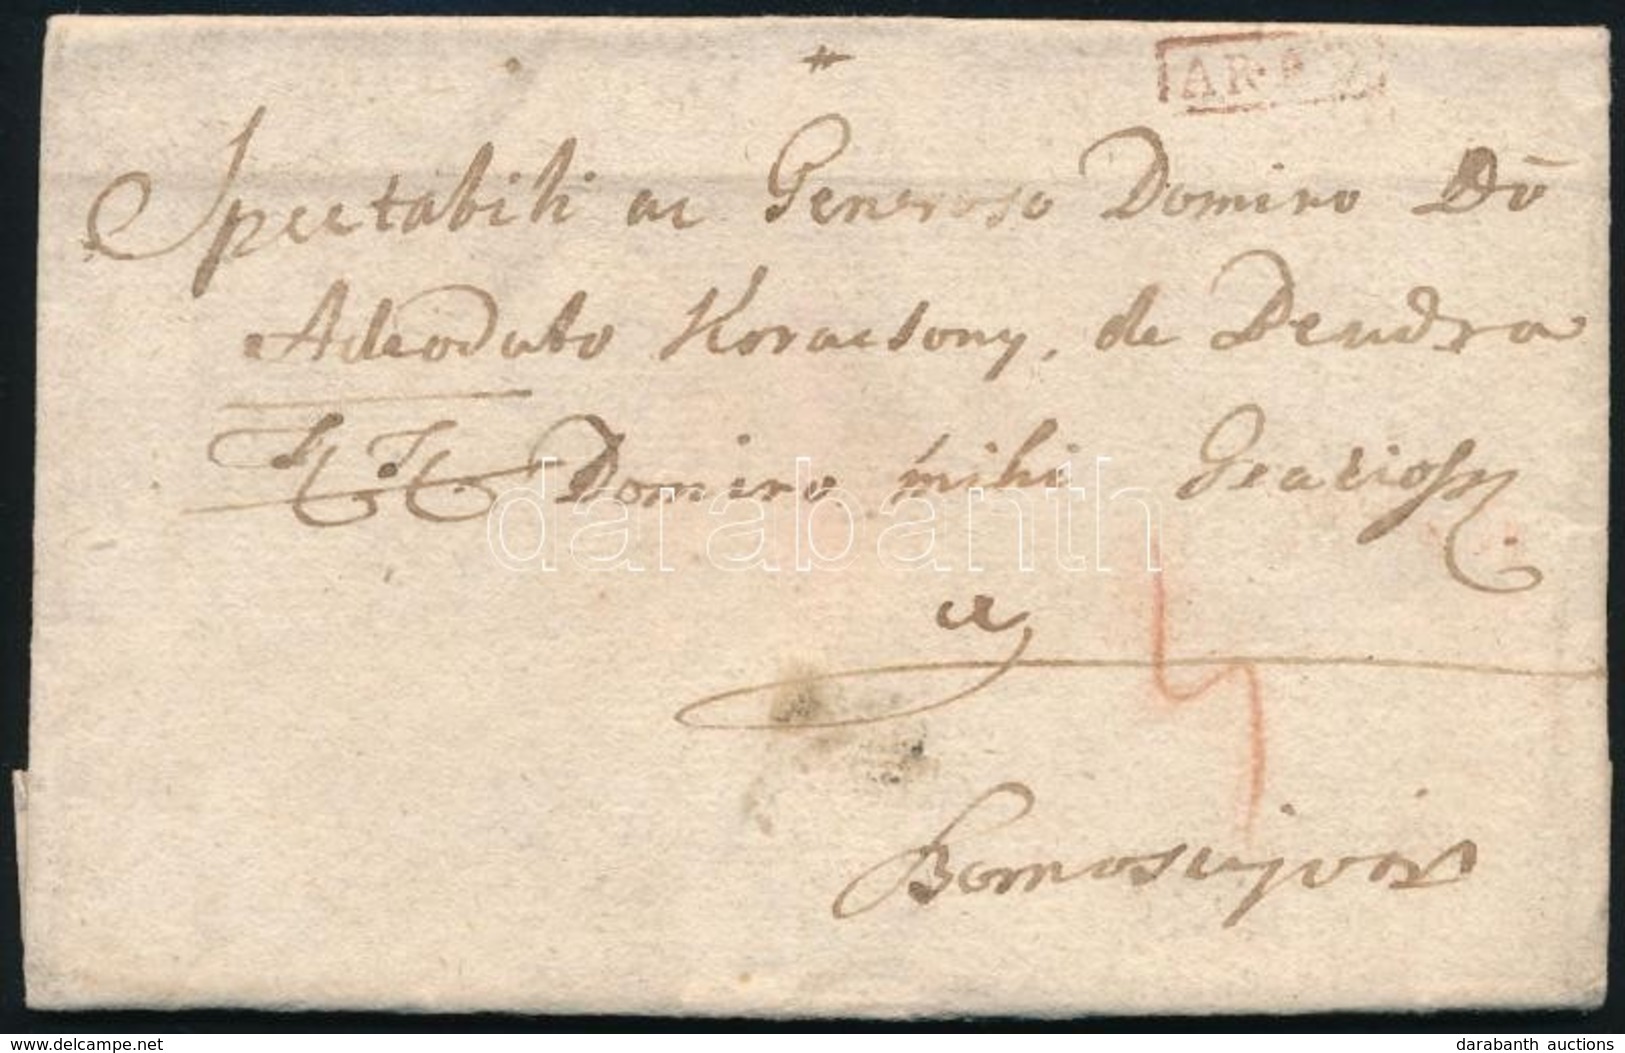 Spectabili ac Generoso Domino Dō
Adeodato Koracsony, de Dendra
T. T. Domino mihi Gratioso
a
darabanth
yumpu.delcampe.net
darabanth auctions